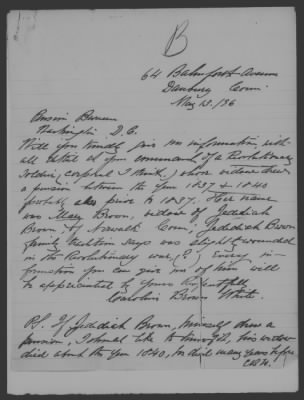 B
64 Balmforth Avenue
Danbury Conn.
May 13. /36
Pension Bureau
Washington D.C.
Will you kindly give me information with
all detail at your command, of a Revolutionary
Soldier, corporal I think,) whose widow drew
a pension between the years 1837 & 1840
probably also prior to 1837. Her name
was Mary Brown, widow of Jedidiah
Brown, of Norwalk Conn, Jedidiah Brown
family tradition says was slightly wounded
in the Revolutionary War (?) Every in-
formation you can give me of him will
be appreciated by yours respectfully
Caroline Brown White.
P.S. If Jedidiah Brown, himself drew a
pension, I should like to know of it, his widow
died about the year 1840, he died many years before